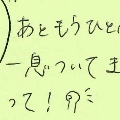 あともうひと
一息ついてま
って!